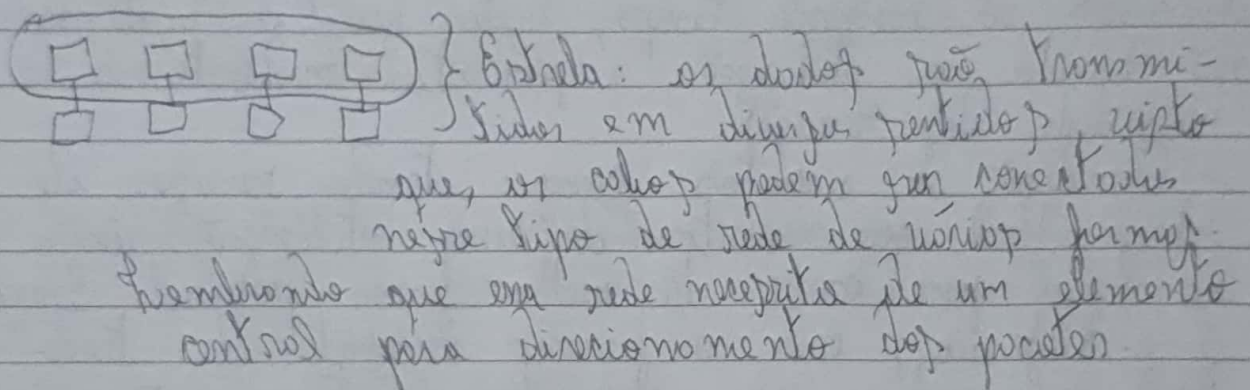 Estrela: os dados são transmi-
tidos em diversos sentidos, visto
que, os cabos podem ser conectados
nesse tipo de rede de várias formas.
Lembrando que essa rede necessita de um elemento
central para direcionamento dos pacotes.